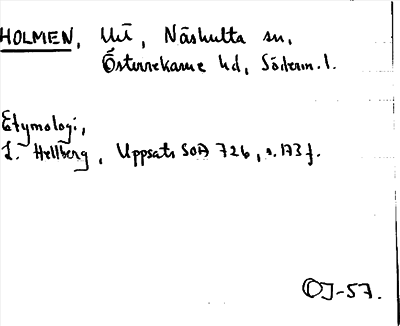 HOLMEN, Näshulta sn,
Österrekarne hd, Söderm. l.
Etymologi,
L. Hellberg, Uppsats SOA 726, s. 173 f.
OJ-57.